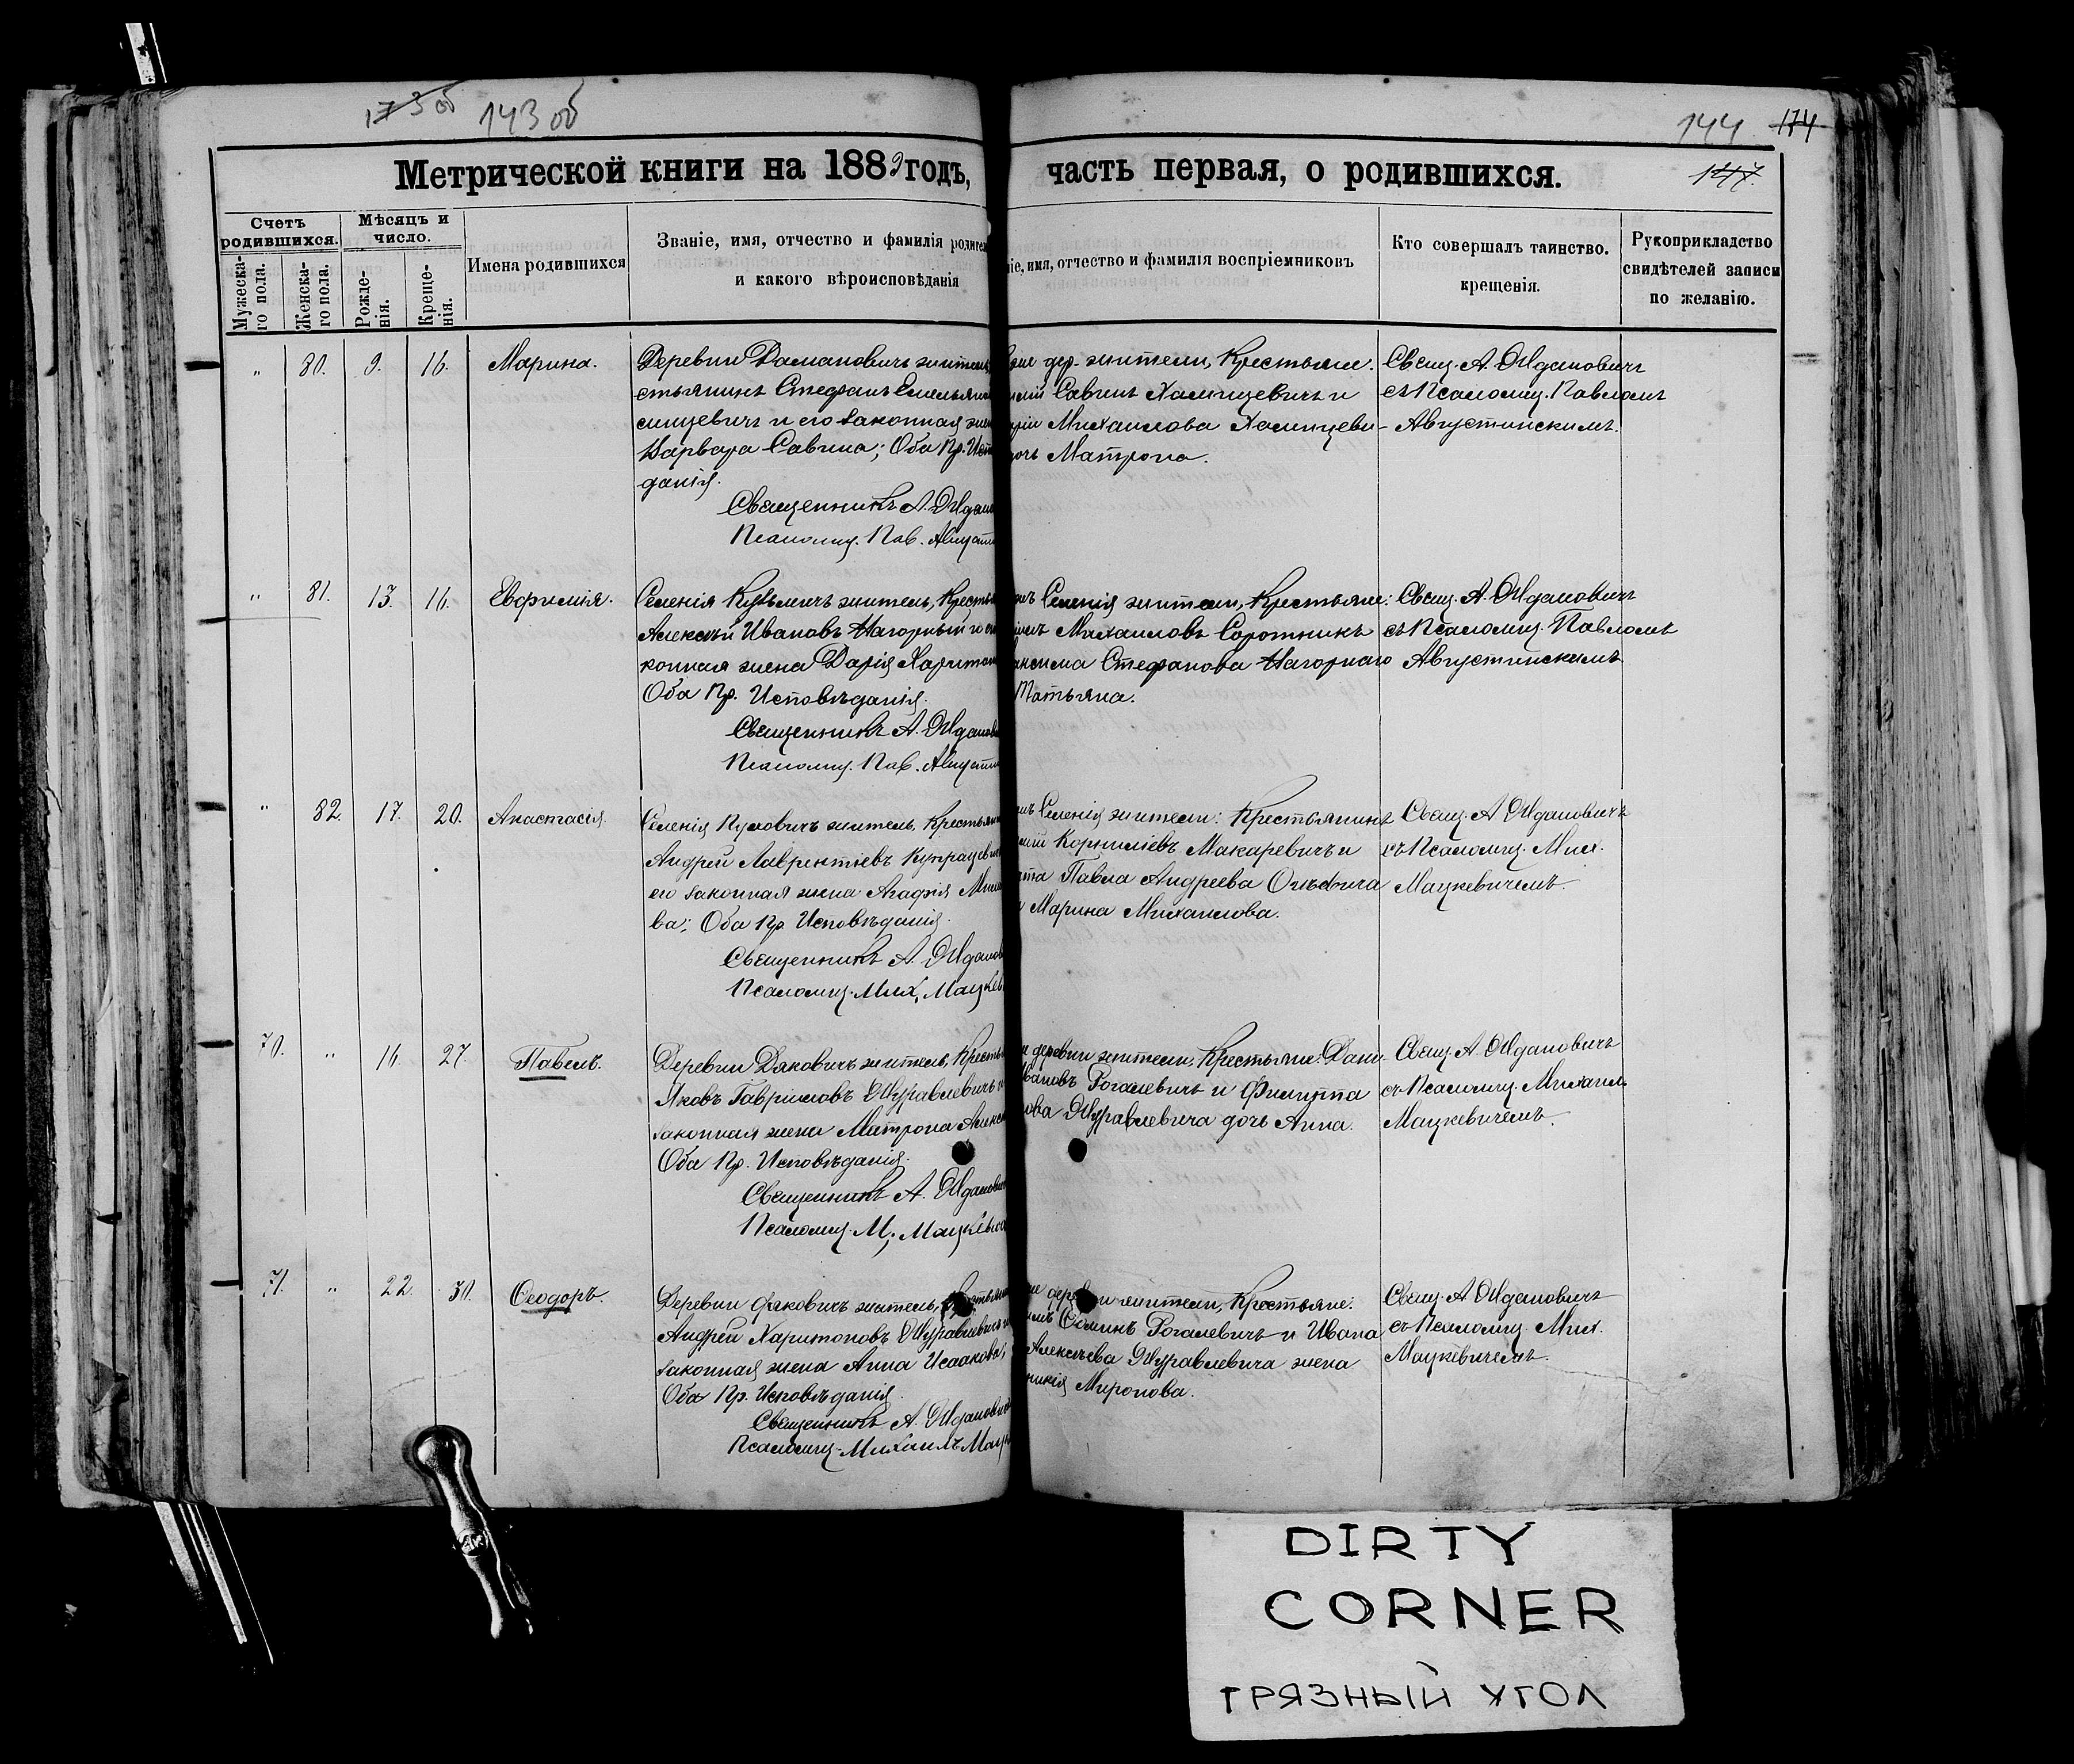 173 об 143 об
144 174
Метрической книги на 1889 годъ, часть первая, о родившихся.
147.
Счетъ родившихся.
Мужеска-го пола.
Женска-го пола.
Мѣсяцъ и число.
Рожде-нія.
Креще-нія.
Имена родившихся
Званіе, имя, отчество и фамилія родител
и какого вѣроисповѣданія
ніе, имя, отчество и фамилія воспріемниковъ
Кто совершалъ таинство.
крещенія.
Рукоприкладство
свидѣтелей записи
по желанію.
" 80. 9. 16. Марина.
Деревни Даманович житель,
стьянинъ Стефанъ Емельян
и его законная жен
Варвара Савина; Оба Пр. Исп
данія.
Священникъ А. Ждан
Псаломщ. Пав. Августи
дер. жители, Крестьяне.
Савинъ Хамицевичъ и
Михаилова Хамицеви-
дочь Матрона.
Свящ. А. Ждановичъ
съ Псаломщ. Павломъ
Августинскимъ.
" 81. 13. 16. Евфимія.
Селенія Кузьмичъ житель, Кресть
Алексѣй Ивановъ Нагорный и
конная жена Дарія Харитон
Оба Пр. Исповѣданія.
Священникъ А. Жданов
Псаломщ. Пав. Августи
Селенія жители, Крестьяне:
Михаиловъ Соротникъ
Стефанова Нагорнаго
Татьяна.
Свящ. А. Ждановичъ
съ Псаломщ. Павломъ
Августинскимъ
" 82. 17. 20. Анастасія.
Селенія Пуховичъ житель, Крестьян
Андрей Лаврентіевъ Купрацеви
его законная жена Агафія Миха
ва; Оба Пр. Исповѣданія.
Священникъ А. Жданов
Псаломщ. Мих. Мацкев
Селенія жители: Крестьянинъ
Корниліевъ Макаревичъ и
Павла Андреева
Марина Михаилова.
Свящ. А Ждановичъ
съ Псаломщ. Мих.
Мацкевичемъ.
70. " 16. 27. Павелъ.
Деревни Дяковичъ житель, Кресть
Яковъ Гавріиловъ Журавлевичъ и
законная жена Матрона Алекс
Оба Пр. Исповѣданія.
Священникъ А. Жданович
Псаломщ. М. Мацкевич
деревни жители, Крестьяне: Дани-
Ивановъ Рогалевичъ и Филиппа
Журавлевича дочь Анна.
Свящ. А. Ждановичъ
съ Псаломщ. Михаил.
Мацкевичемъ.
71. " 22. 30. Ѳеодоръ.
Деревни Дяковичъ житель, Крестьян
Андрей Харитоновъ Журавлевичъ и
законная жена Анна Исаакова;
Оба Пр. Исповѣданія.
Священникъ А. Жданович
Псаломщ. Михаилъ Мацк
деревни жители, Крестьяне:
Ѳоминъ Рогалевичъ и Ивана
Алексѣева Журавлевича жена
Миронова.
Свящ. А Ждановичъ
съ Псаломщ. Мих.
Мацкевичемъ.
DIRTY
CORNER
ГРЯЗНЫЙ УГОЛ